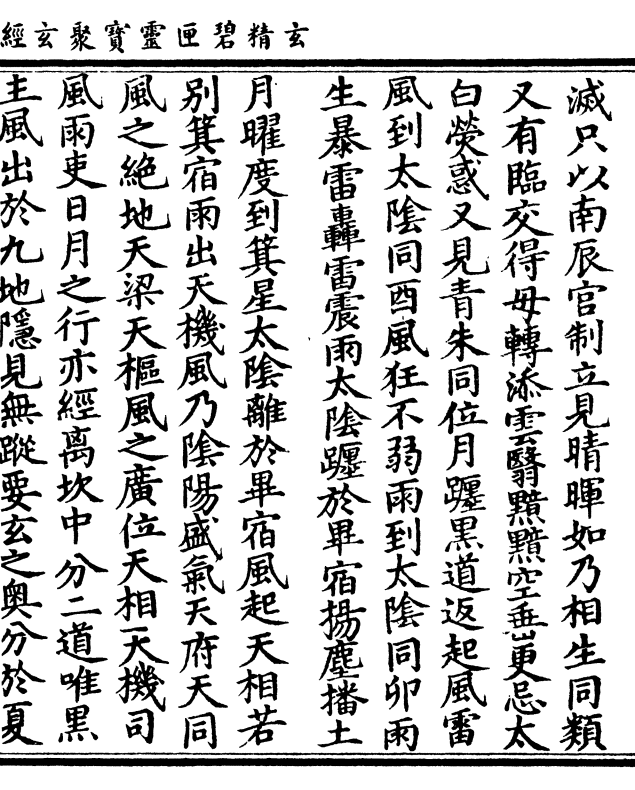 玄精碧匣靈寶聚玄經
滅只以南辰宮制立見晴暉如乃相生同類
又有臨交得母轉添雲翳黰黰空垂更忌太
白熒惑又見青朱同位月躔黑道返起風雷
風到太陰同酉風狂不弱雨到太陰同卯雨
生暴雷轟雷震雨太陰躔於畢宿揚塵播土
月曜度到箕星太陰離於畢宿風起天相若
別箕宿雨出天機風乃陰陽盛氣天府天同
風之絕地天梁天樞風之廣位天相天機司
風雨吏日月之行亦經离坎中分二道唯黑
主風出於九地隱見無蹤要玄之奧分於夏